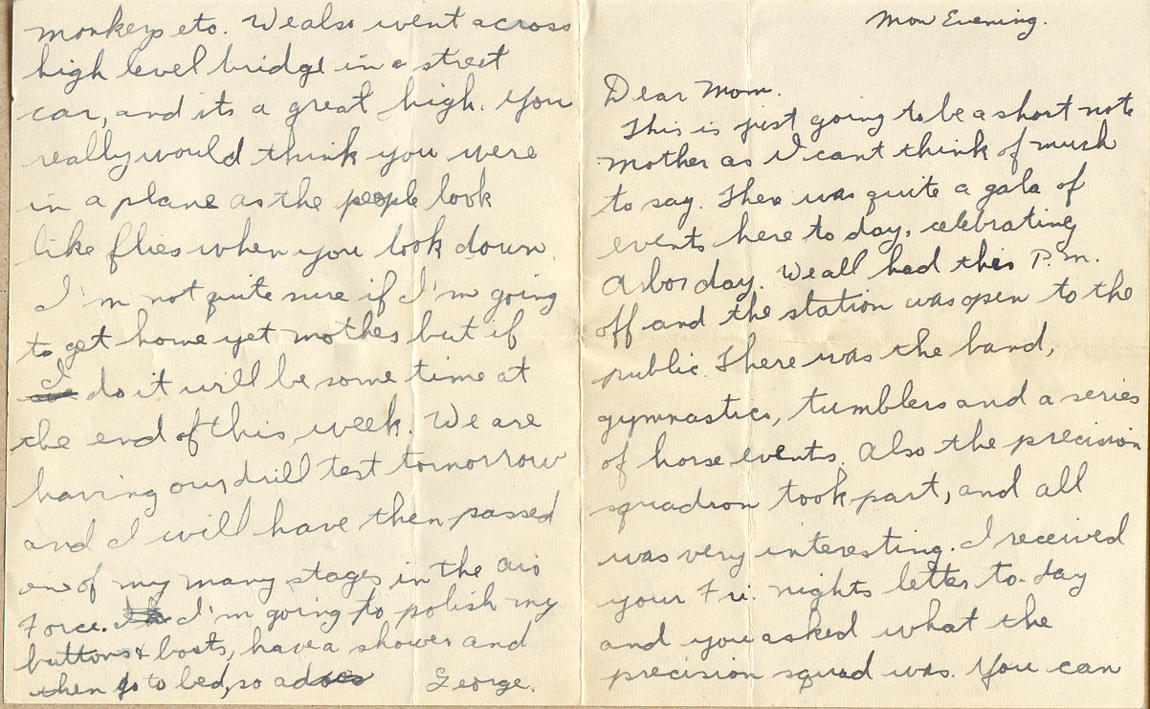 Mon Evening.
Dear Mom.
This is just going to be a short note
Mother as I cant think of much
to say. There was quite a gala of
events here to day, celebrating
Arbor day. We all had this P.M.
off and the station was open to the
public. There was the band,
gymnastics, tumblers and a series
of horse events. Also the precision
squadron took part, and all
was very interesting. I received
your Fri. nights letter to-day
and you asked what the
precision squad was. You can
monkeys etc. We also went across
high level bridge in a street
car, and its a great high. You
really would think you were
in a plane as the people look
like flies when you look down.
I'm not quite sure if I'm going
to get home yet mother but if
I do it will be some time at
the end of this week. We are
having our drill test tomorrow
and I will have then passed
one of my many stages in the Air
Force. I'm going to polish my
buttons & boots, have a shower and
then go to bed, so adois George.